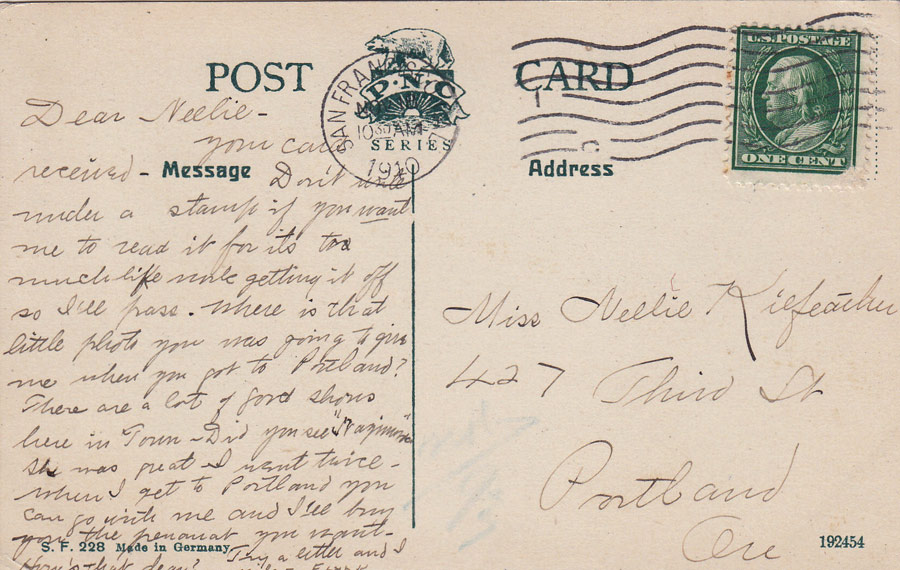 POST CARD
P·N·C
SERIES
SAN FRANCISCO
1030 AM
1910
U.S. POSTAGE
ONE CENT
Message
Address
Dear Neelie -
your card
received - Don't write
under a stamp if you want
me to read it for its too
much like work getting it off
so I'll pass. Where is that
little photo you was going to give
me when you got to Portland?
There are a lot of good shows
here in Town - Did you see "
She was great - I went twice -
When I get to Portland you
can go with me and I'll buy
you the you want -
How's that dear? Try a letter and I
Miss Neelie
427 Third St
Portland
Ore
S. F. 228 Made in Germany
192454